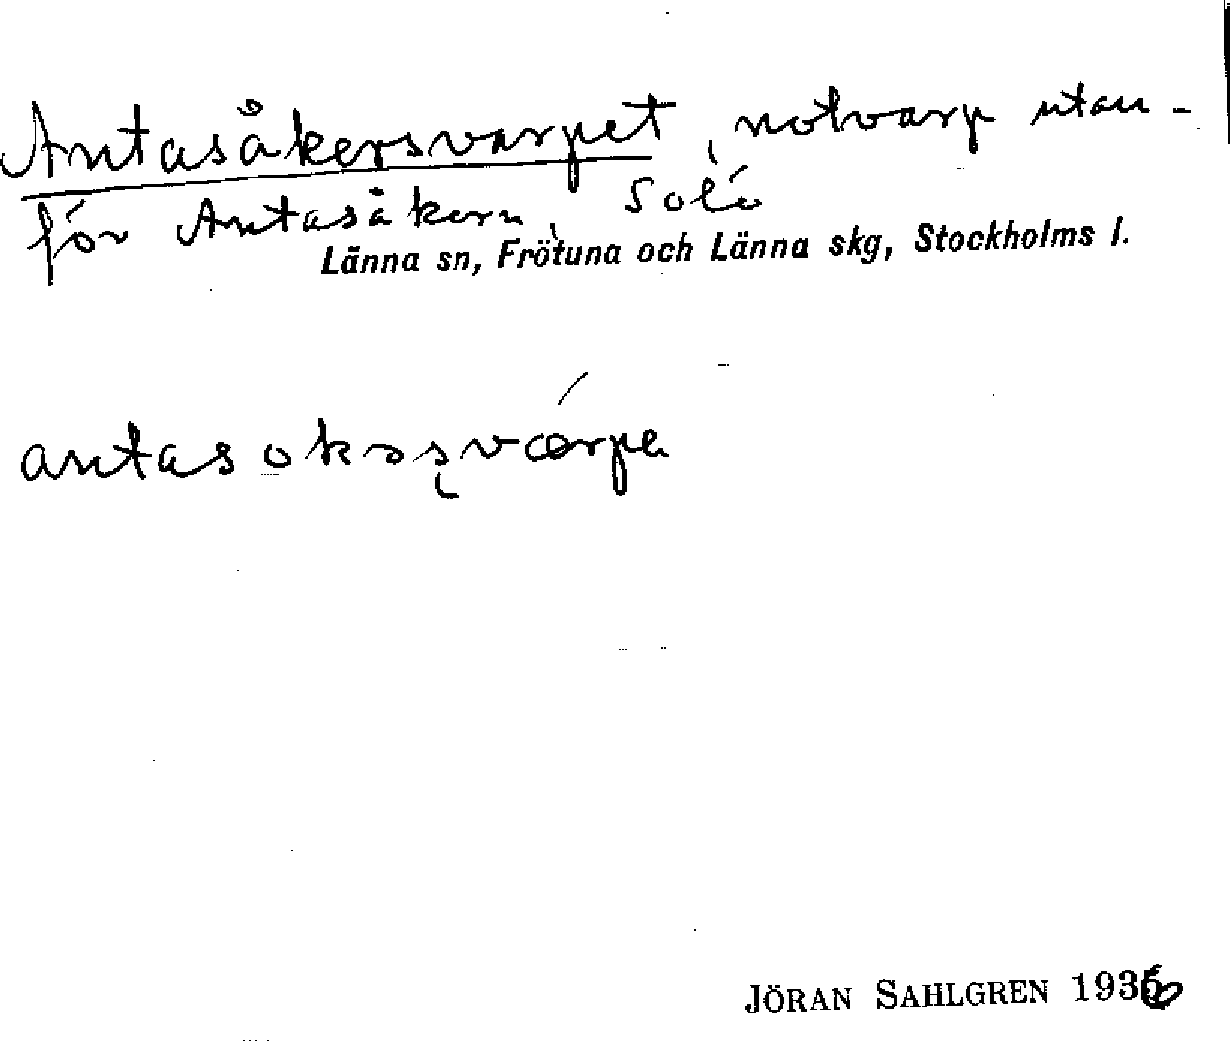 Antasåkersvarpet, notvarp utan-
för Antasåkern, Solö
Länna sn, Frötuna och Länna skg, Stockholms l.
JÖRAN SAHLGREN 1936